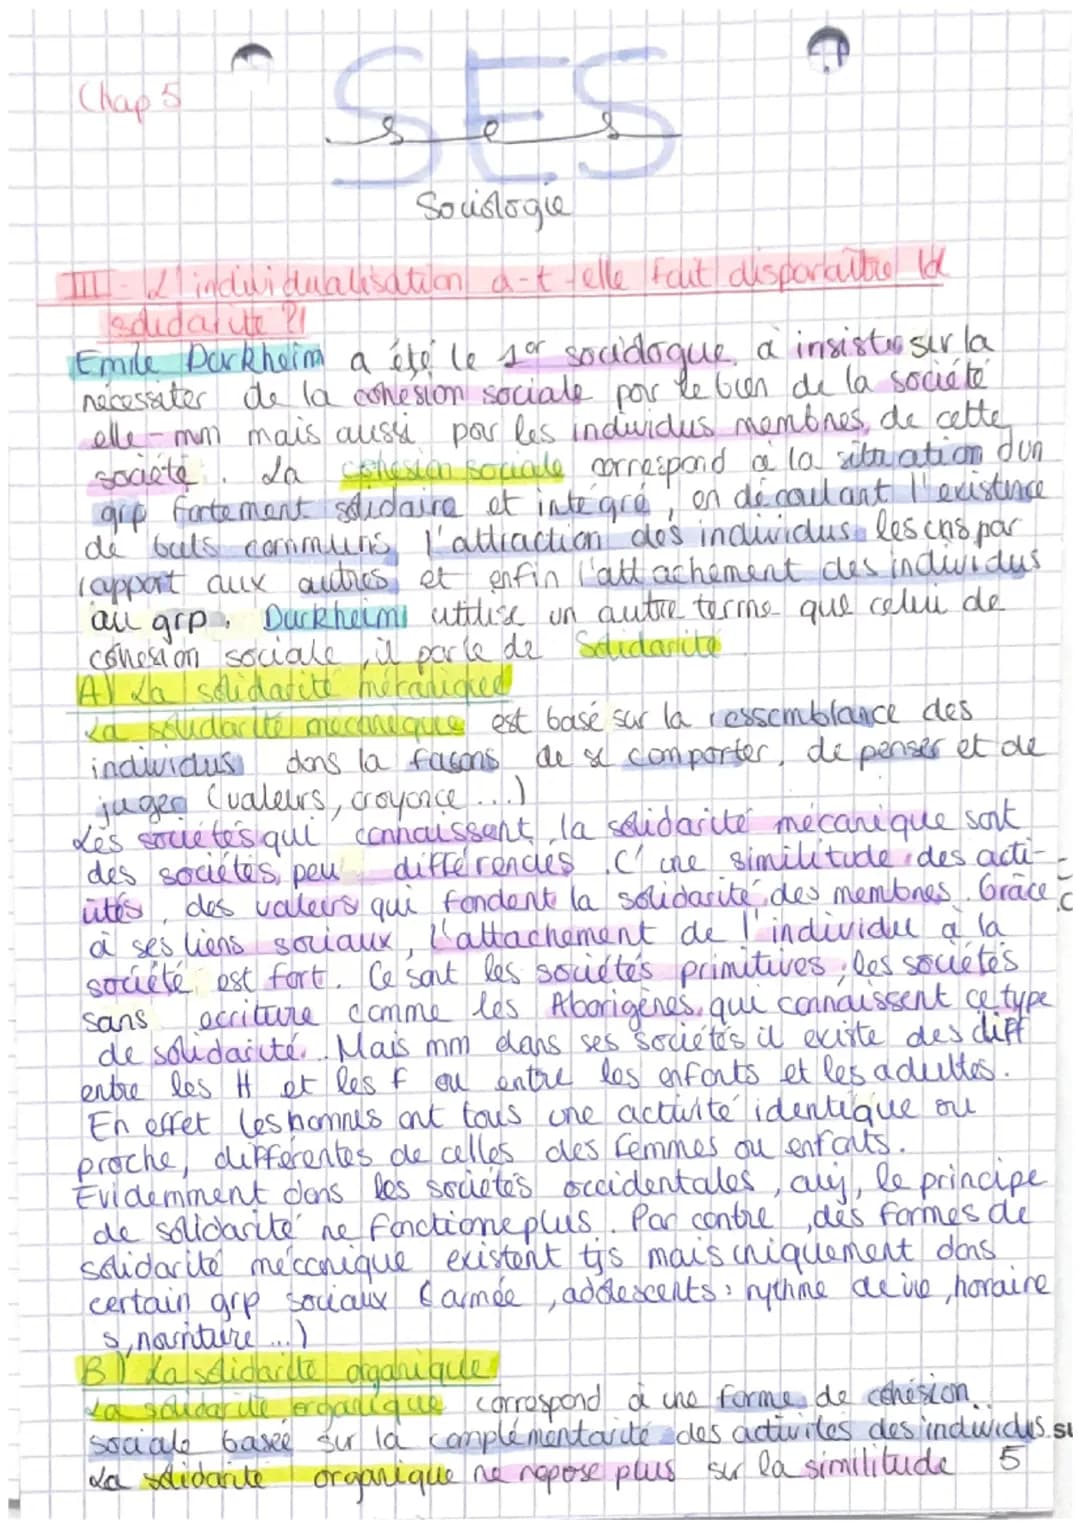 Chap 5
SES
s e s
Sociologie
III - L'individualisation a-t-elle fait disparaître la
solidarité ?
Emile Durkheim a été le 1er sociologue à insister sur la
nécessiter de la cohésion sociale pour le bien de la société
elle-mm mais aussi pour les individus membres de cette
société. La cohésion sociale correspond à la situation d'un
grp fortement solidaire et intégré, en découlant l'existence
de buts communs, l'attraction des individus les uns par
rapport aux autres et enfin l'attachement des individus
au grp. Durkheim utilise un autre terme que celui de
cohésion sociale, il parle de Solidarité
A) La solidarité mécanique
La solidarité mécanique est basé sur la ressemblance des
individus dans la façons de se comporter, de penser et de
juger (valeurs, croyance...)
Les sociétés qui connaissent la solidarité mécanique sont
des sociétés peu différenciés. C' une similitude des acti-
ités, des valeurs qui fondent la solidarité des membres. Grâce
à ses liens sociaux, l'attachement de l'individu à la
société est fort. Ce sont les sociétés primitives, les sociétés
sans occriture comme les Aborigènes qui connaissent ce type
de solidarité. Mais mm dans ses sociétés il existe des diff
entre les H et les F ou entre les enfants et les adultes.
En effet les hommes ont tous une activité identique ou
proche, différentes de celles des femmes ou enfants.
Evidemment dans les sociétés occidentales, auj, le principe
de solidarité ne fonctione plus. Par contre, des formes de
solidarité mécanique existent tjs mais uniquement dans
certain grp sociaux (armée, adolescents : rythme de vie, horaire
s, nourriture...)
B) La solidarité organique
La solidarité organique correspond à une forme de cohésion
sociale basée sur la complémentarité des activités des individus
La solidarité organique ne repose plus sur la similitude 5